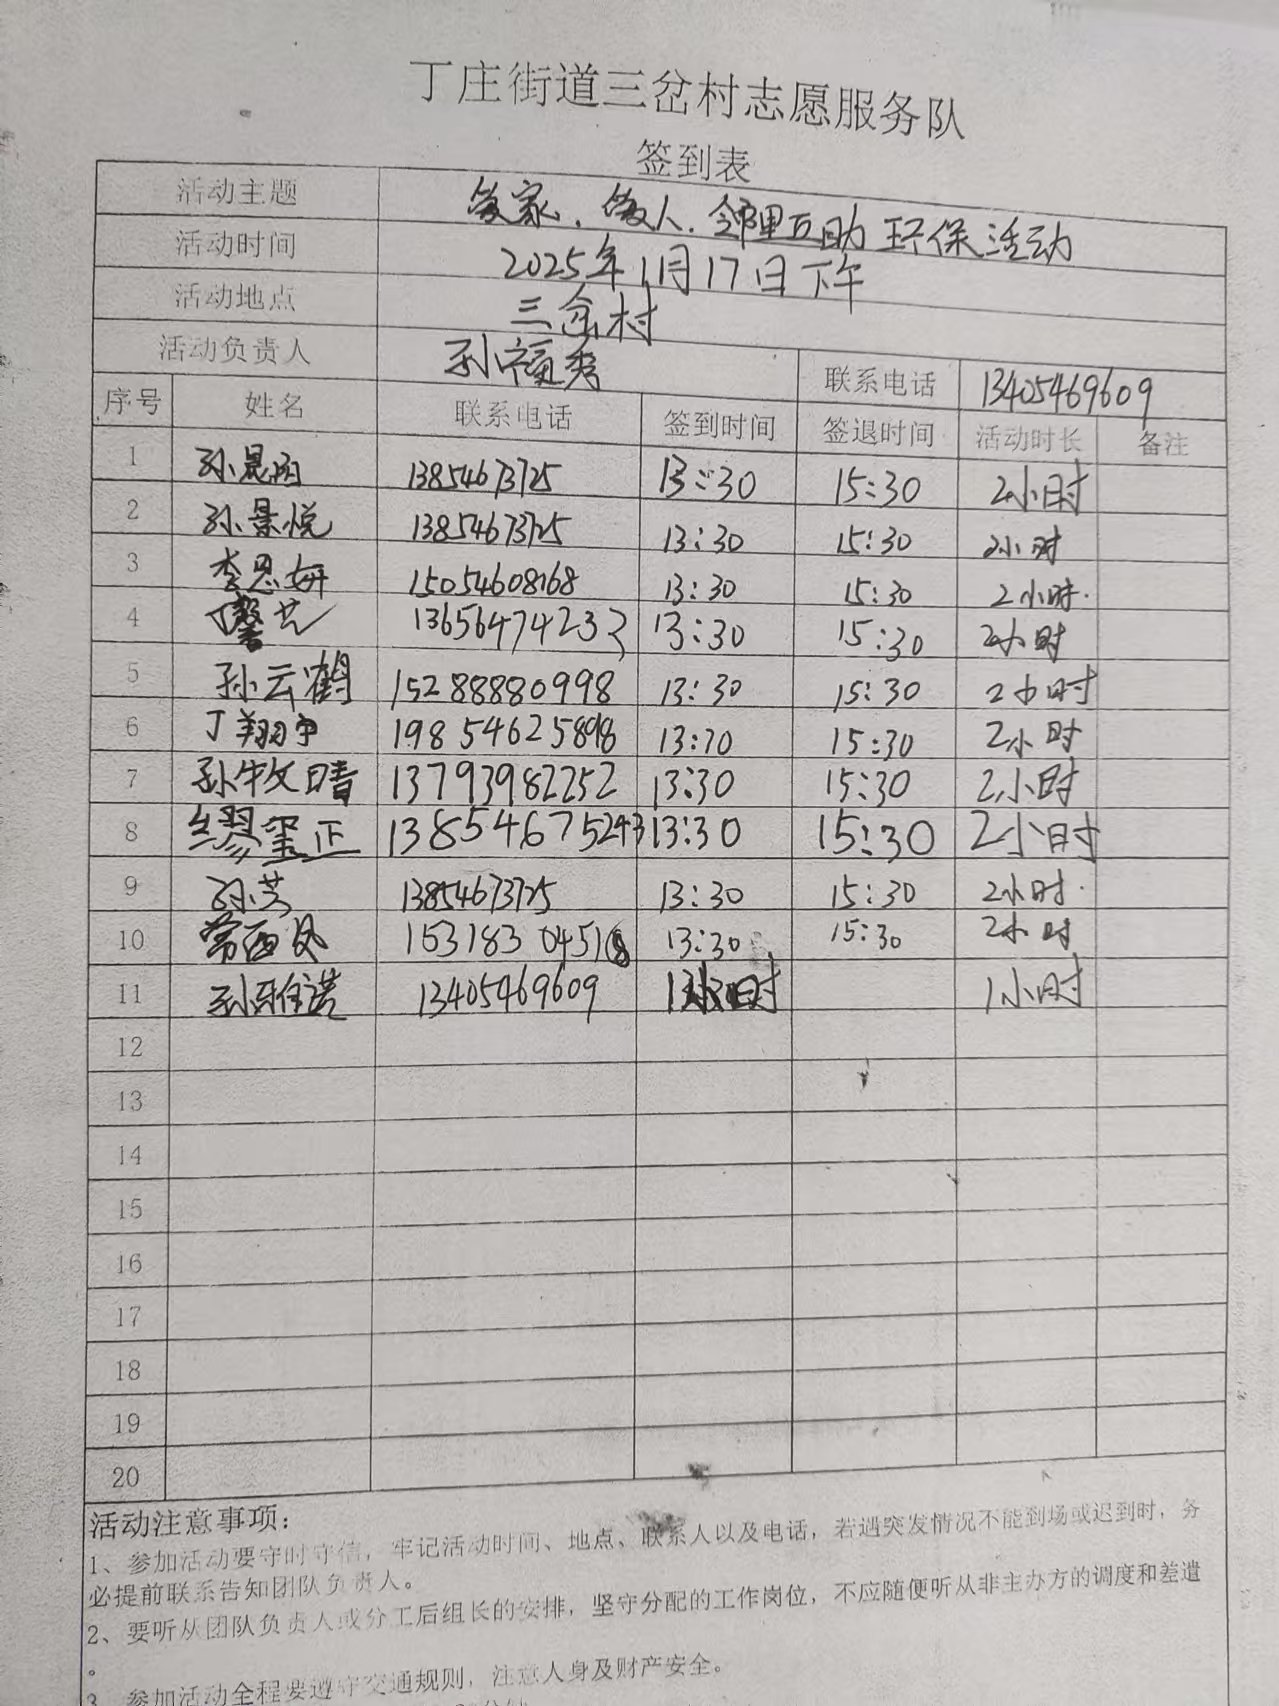 丁庄街道三岔村志愿服务队
签到表
活动主题 敬家、敬人、邻里互助 环保活动
活动时间 2025年1月17日下午
活动地点 三岔村
活动负责人 孙福秀 联系电话 13405469609
序号 姓名 联系电话 签到时间 签退时间 活动时长 备注
1 孙晟涵 13854673725 13:30 15:30 2小时
2 孙景悦 13854673725 13:30 15:30 2小时
3 李恩妍 15054608168 13:30 15:30 2小时.
4 丁馨艺 13656474232 13:30 15:30 2小时
5 孙云鹤 15288880998 13:30 15:30 2小时
6 丁翔宇 19854625898 13:30 15:30 2小时
7 孙牧晴 13793982252 13:30 15:30 2小时
8 缪玺正 13854675243 13:30 15:30 2小时
9 孙芳 13854673725 13:30 15:30 2小时.
10 常西 15318304518 13:30 15:30 2小时
11 孙雅诺 13405469609 1小时
12
13
14
15
16
17
18
19
20
活动注意事项:
1、参加活动要守时守信，牢记活动时间、地点、联系人以及电话，若遇突发情况不能到场或迟到时，务
必提前联系告知团队负责人。
2、要听从团队负责人或分工后组长的安排，坚守分配的工作岗位，不应随便听从非主办方的调度和差遣
。
3、参加活动全程要遵守交通规则，注意人身及财产安全。